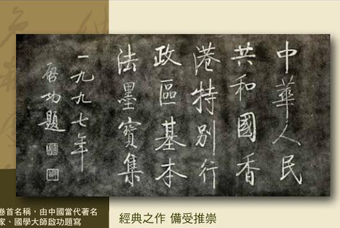 中華人民
共和國香
港特別行
政區基本
法墨寶集
一九九七年
啓功題
卷首名稱,由中國當代著名
家、國學大師啟功題寫
經典之作 備受推崇